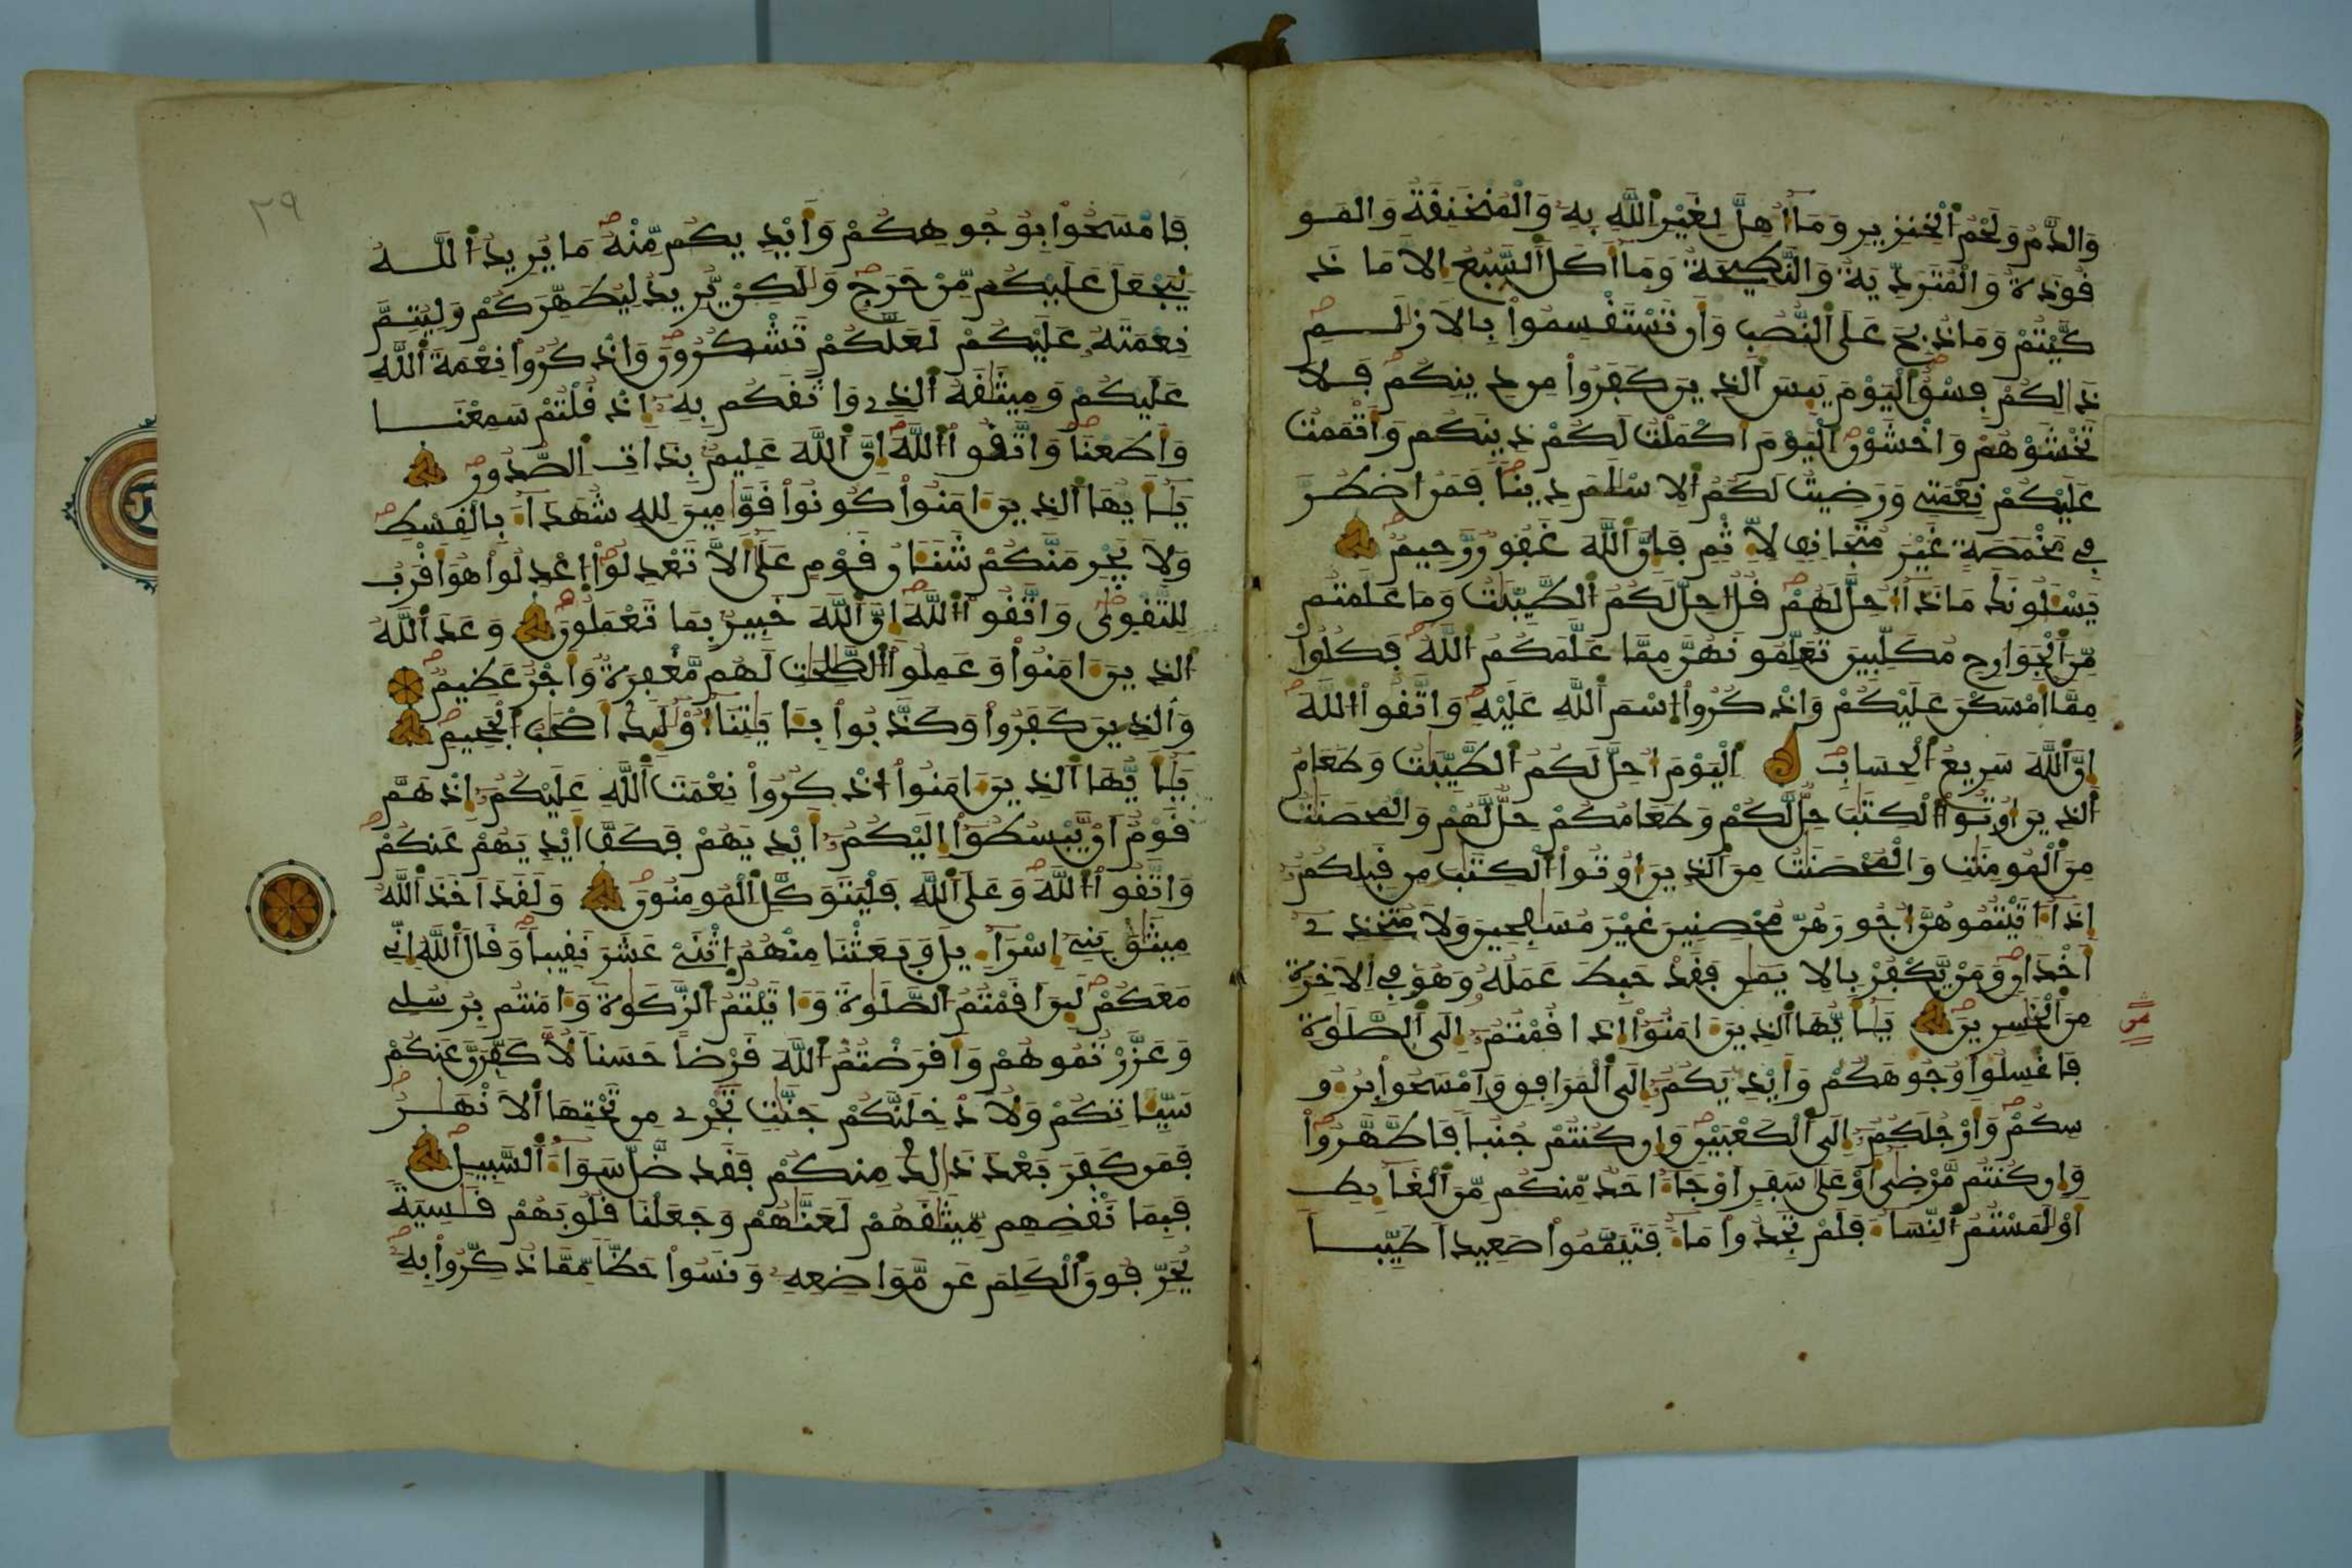 وَالدَّمُ وَلَحْمُ اُ۬لْخِنزِيرِ وَمَآ أُهِلَّ لِغَيْرِ اِ۬للَّهِ بِهِۦ وَالْمُنْخَنِقَةُ وَالْمَوْ
قُوذَةُ وَالْمُتَرَدِّيَةُ وَالنَّطِيحَةُ وَمَآ أَكَلَ اَ۬لسَّبُعُ إِلَّا مَا ذَ
كَّيْتُمْ وَمَا ذُبِحَ عَلَى اَ۬لنُّصُبِ وَأَن تَسْتَقْسِمُوا۟ بِالَازْلَٰمِ
ذَٰلِكُمْ فِسْقٌ اِ۬لْيَوْمَ يَئِسَ اَ۬لذِينَ كَفَرُوا۟ مِن دِينِكُمْ فَلَا
تَخْشَوْهُمْ وَاخْشَوْنِ اِ۬لْيَوْمَ أَكْمَلْتُ لَكُمْ دِينَكُمْ وَأَتْمَمْتُ
عَلَيْكُمْ نِعْمَتِے وَرَضِيتُ لَكُمُ اُ۬لِاسْلَٰمَ دِيناً فَمَنُ اُ۟ضْطُرَّ
فِے مَخْمَصَةٍ غَيْرَ مُتَجَانِفٖ لِّإِثْمٖ فَإِنَّ اَ۬للَّهَ غَفُورٌ رَّحِيمٌ
يَسْـَٔلُونَكَ مَاذَآ أُحِلَّ لَهُمْ قُلُ ا۟حِلَّ لَكُمُ اُ۬لطَّيِّبَٰتُ وَمَا عَلَّمْتُم
مِّنَ اَ۬لْجَوَارِحِ مُكَلِّبِينَ تُعَلِّمُونَهُنَّ مِمَّا عَلَّمَكُمُ اُ۬للَّهُ فَكُلُوا۟
مِمَّآ أَمْسَكْنَ عَلَيْكُمْ وَاذْكُرُوا۟ اُ۪سْمَ اَ۬للَّهِ عَلَيْهِ وَاتَّقُوا۟ اُ۬للَّهَ
إِنَّ اَ۬للَّهَ سَرِيعُ اُ۬لْحِسَابِ اِ۬لْيَوْمَ أُحِلَّ لَكُمُ اُ۬لطَّيِّبَٰتُ وَطَعَامُ
اُ۬لذِينَ أُوتُوا۟ اُ۬لْكِتَٰبَ حِلٌّ لَّكُمْ وَطَعَامُكُمْ حِلٌّ لَّهُمْ وَالْمُحْصَنَٰتُ
مِنَ اَ۬لْمُومِنَٰتِ وَالْمُحْصَنَٰتُ مِنَ اَ۬لذِينَ أُوتُوا۟ اُ۬لْكِتَٰبَ مِن قَبْلِكُمُۥ
إِذَآ ءَاتَيْتُمُوهُنَّ أُجُورَهُنَّ مُحْصِنِينَ غَيْرَ مُسَٰفِحِينَ وَلَا مُتَّخِذِے
أَخْدَانٖ وَمَنْ يَّكْفُرْ بِالِايمَٰنِ فَقَدْ حَبِطَ عَمَلُهُۥ وَهُوَ فِے اِ۬لَاخِرَةِ
مِنَ اَ۬لْخَٰسِرِينَ يَٰٓأَيُّهَا اَ۬لذِينَ ءَامَنُوٓا۟ إِذَا قُمْتُمُۥٓ إِلَى اَ۬لصَّلَوٰةِ
فَاغْسِلُوا۟ وُجُوهَكُمْ وَأَيْدِيَكُمُۥٓ إِلَى اَ۬لْمَرَافِقِ وَامْسَحُوا۟ بِرُءُو
سِكُمْ وَأَرْجُلَكُمُۥٓ إِلَى اَ۬لْكَعْبَيْنِ وَإِن كُنتُمْ جُنُباً فَاطَّهَّرُوا۟
وَإِن كُنتُم مَّرْضَىٰٓ أَوْ عَلَىٰ سَفَرٍ اَوْ جَآءَ احَدٌ مِّنكُم مِّنَ اَ۬لْغَآئِطِ
أَوْ لَٰمَسْتُمُ اُ۬لنِّسَآءَ فَلَمْ تَجِدُوا۟ مَآءً فَتَيَمَّمُوا۟ صَعِيداً طَيِّباً
٢٩
فَامْسَحُوا۟ بِوُجُوهِكُمْ وَأَيْدِيكُم مِّنْهُ مَا يُرِيدُ اُ۬للَّهُ
لِيَجْعَلَ عَلَيْكُم مِّنْ حَرَجٖ وَلَٰكِنْ يُّرِيدُ لِيُطَهِّرَكُمْ وَلِيُتِمَّ
نِعْمَتَهُۥ عَلَيْكُمْ لَعَلَّكُمْ تَشْكُرُونَ وَاذْكُرُوا۟ نِعْمَةَ اَ۬للَّهِ
عَلَيْكُمْ وَمِيثَٰقَهُ اُ۬لذِے وَاثَقَكُم بِهِۦٓ إِذْ قُلْتُمْ سَمِعْنَا
وَأَطَعْنَا وَاتَّقُوا۟ اُ۬للَّهَ إِنَّ اَ۬للَّهَ عَلِيمٌ بِذَاتِ اِ۬لصُّدُورِ
يَٰٓأَيُّهَا اَ۬لذِينَ ءَامَنُوا۟ كُونُوا۟ قَوَّٰمِينَ لِلهِ شُهَدَآءَ بِالْقِسْطِ
وَلَا يَجْرِمَنَّكُمْ شَنَـَٔانُ قَوْمٍ عَلَىٰٓ أَلَّا تَعْدِلُوا۟ اُ۪عْدِلُوا۟ هُوَ أَقْرَبُ
لِلتَّقْوٜىٰ وَاتَّقُوا۟ اُ۬للَّهَ إِنَّ اَ۬للَّهَ خَبِيرٌ بِمَا تَعْمَلُونَ وَعَدَ اَ۬للَّهُ
اُ۬لذِينَ ءَامَنُوا۟ وَعَمِلُوا۟ اُ۬لصَّٰلِحَٰتِ لَهُم مَّغْفِرَةٌ وَأَجْرٌ عَظِيمٌ
وَالذِينَ كَفَرُوا۟ وَكَذَّبُوا۟ بِـَٔايَٰتِنَآ أُوْلَٰٓئِكَ أَصْحَٰبُ اُ۬لْجَحِيمِ
يَٰٓأَيُّهَا اَ۬لذِينَ ءَامَنُوا۟ اُ۟ذْكُرُوا۟ نِعْمَتَ اَ۬للَّهِ عَلَيْكُمُۥٓ إِذْ هَمَّ
قَوْمٌ اَنْ يَّبْسُطُوٓا۟ إِلَيْكُمُۥٓ أَيْدِيَهُمْ فَكَفَّ أَيْدِيَهُمْ عَنكُمْ
وَاتَّقُوا۟ اُ۬للَّهَ وَعَلَى اَ۬للَّهِ فَلْيَتَوَكَّلِ اِ۬لْمُومِنُونَ وَلَقَدَ اَخَذَ اَ۬للَّهُ
مِيثَٰقَ بَنِےٓ إِسْرَآءِيلَ وَبَعَثْنَا مِنْهُمُ اُ۪ثْنَےْ عَشَرَ نَقِيباً وَقَالَ اَ۬للَّهُ إِنِّے
مَعَكُمْ لَئِنَ اَقَمْتُمُ اُ۬لصَّلَوٰةَ وَءَاتَيْتُمُ اُ۬لزَّكَوٰةَ وَءَامَنتُم بِرُسُلِے
وَعَزَّرْتُمُوهُمْ وَأَقْرَضْتُمُ اُ۬للَّهَ قَرْضاً حَسَناً لَّأُكَفِّرَنَّ عَنكُمْ
سَيِّـَٔاتِكُمْ وَلَأُدْخِلَنَّكُمْ جَنَّٰتٖ تَجْرِے مِن تَحْتِهَا اَ۬لَانْهَٰرُ
فَمَن كَفَرَ بَعْدَ ذَٰلِكَ مِنكُمْ فَقَد ضَّلَّ سَوَآءَ اَ۬لسَّبِيلِ
فَبِمَا نَقْضِهِم مِّيثَٰقَهُمْ لَعَنَّٰهُمْ وَجَعَلْنَا قُلُوبَهُمْ قَٰسِيَةً
يُحَرِّفُونَ اَ۬لْكَلِمَ عَن مَّوَاضِعِهِۦ وَنَسُوا۟ حَظّاً مِّمَّا ذُكِّرُوا۟ بِهِۦ